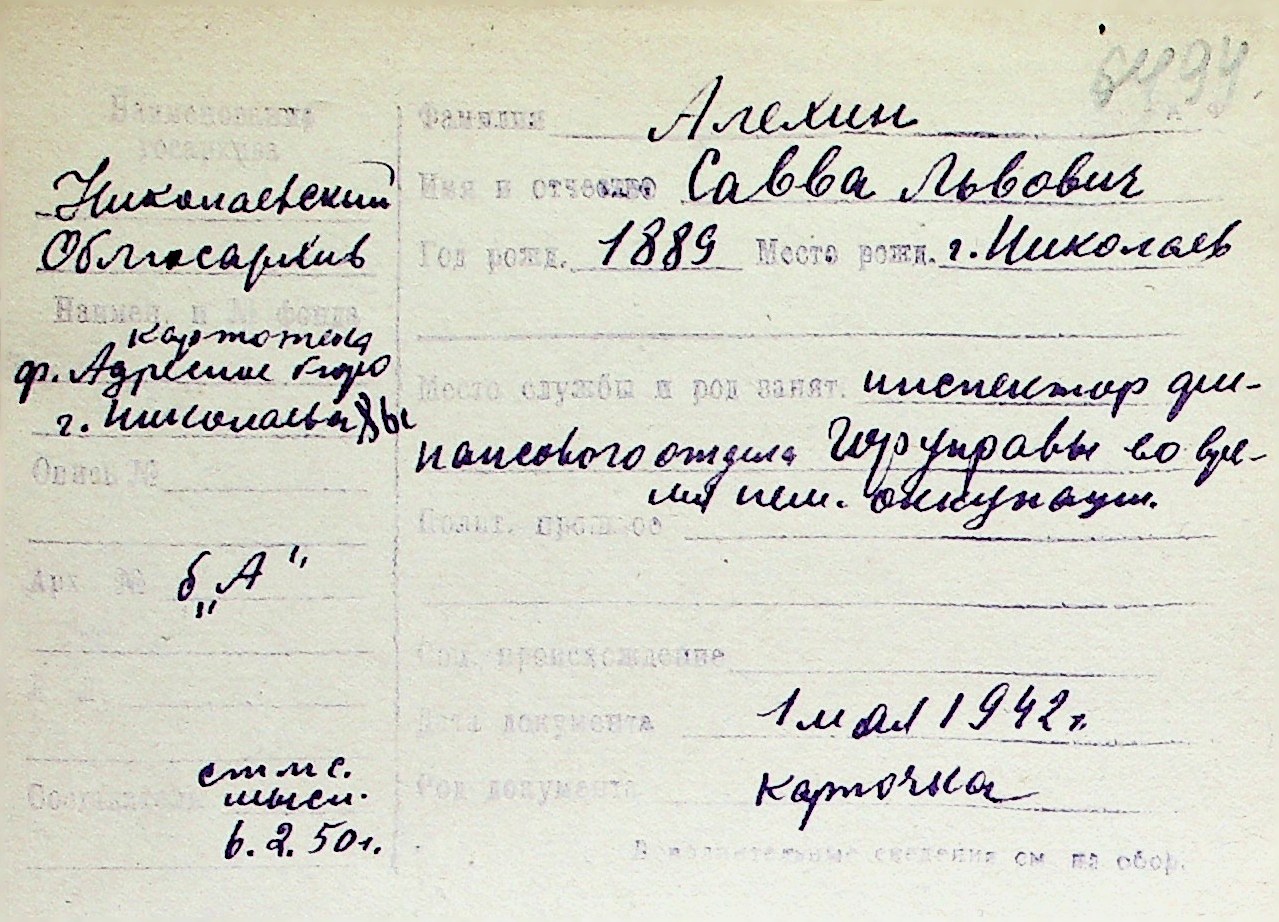 6494
Наименование
госархива
Николаевский
Облгосархив
Наимен. и № фонда
картотека
ф. Адресное бюро
г. Николаева
Опись №
Арх. №
б „А“
Составитель
6.2.50г.
Фамилия Алехин
Имя и отчество Савва Львович
Год рожд. 1889 Место рожд. г. Николаев
Место службы и род занят. инспектор фи-
нансового отдела Горуправы во вре-
мя нем. оккупации.
Полит. прошлое
Соц. происхождение
Дата документа 1 мая 1942 г.
Род документа карточка
Дополнительные сведения см на обор.